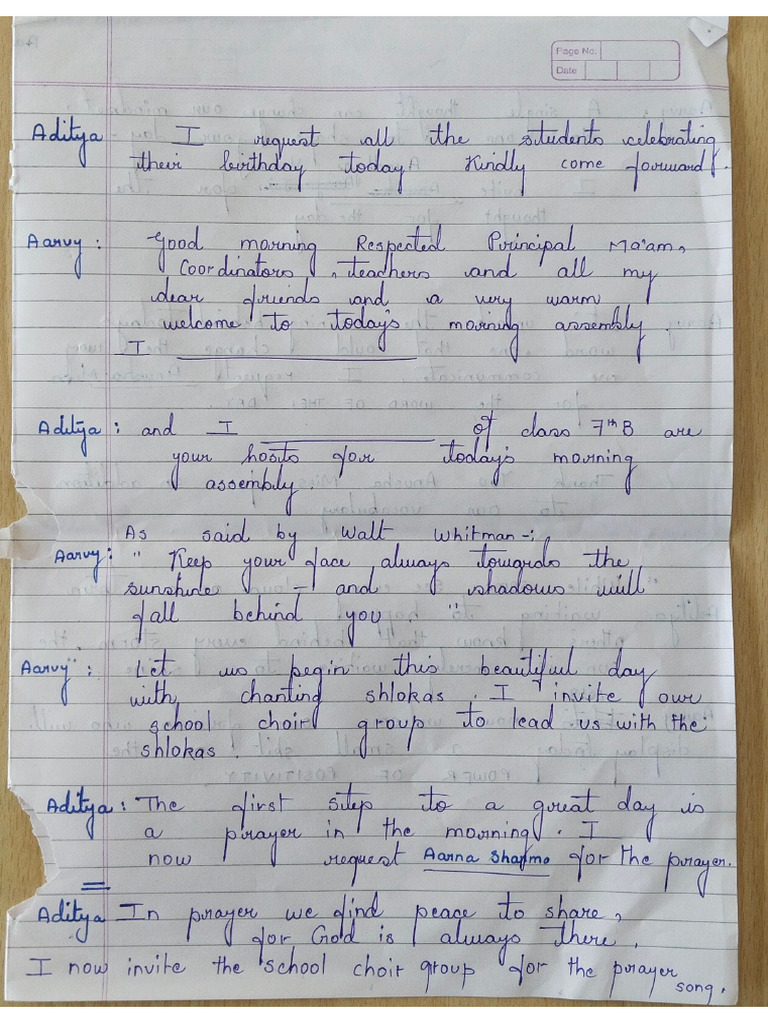 Page No.
Date
Aditya I request all the students celebrating
their birthday today. Kindly come forward.
Aarvy: Good morning Respected Principal Ma'am,
Coordinators, teachers and all my
dear friends and a very warm
welcome to today's morning assembly.
I
Aditya: and I of class 7th B are
your hosts for today's morning
assembly.
As said by Walt Whitman-:
Aarvy: " Keep your face always towards the
sunshine - and shadows will
fall behind you "
Aarvy: Let us begin this beautiful day
with chanting shlokas. I invite our
school choir group to lead us with the
shlokas!
Aditya: The first step to a great day is
a prayer in the morning. I
now request Aarna Sharma for the prayer.
Aditya In prayer we find peace to share,
for God is always there.
I now invite the school choir group for the prayer
song.